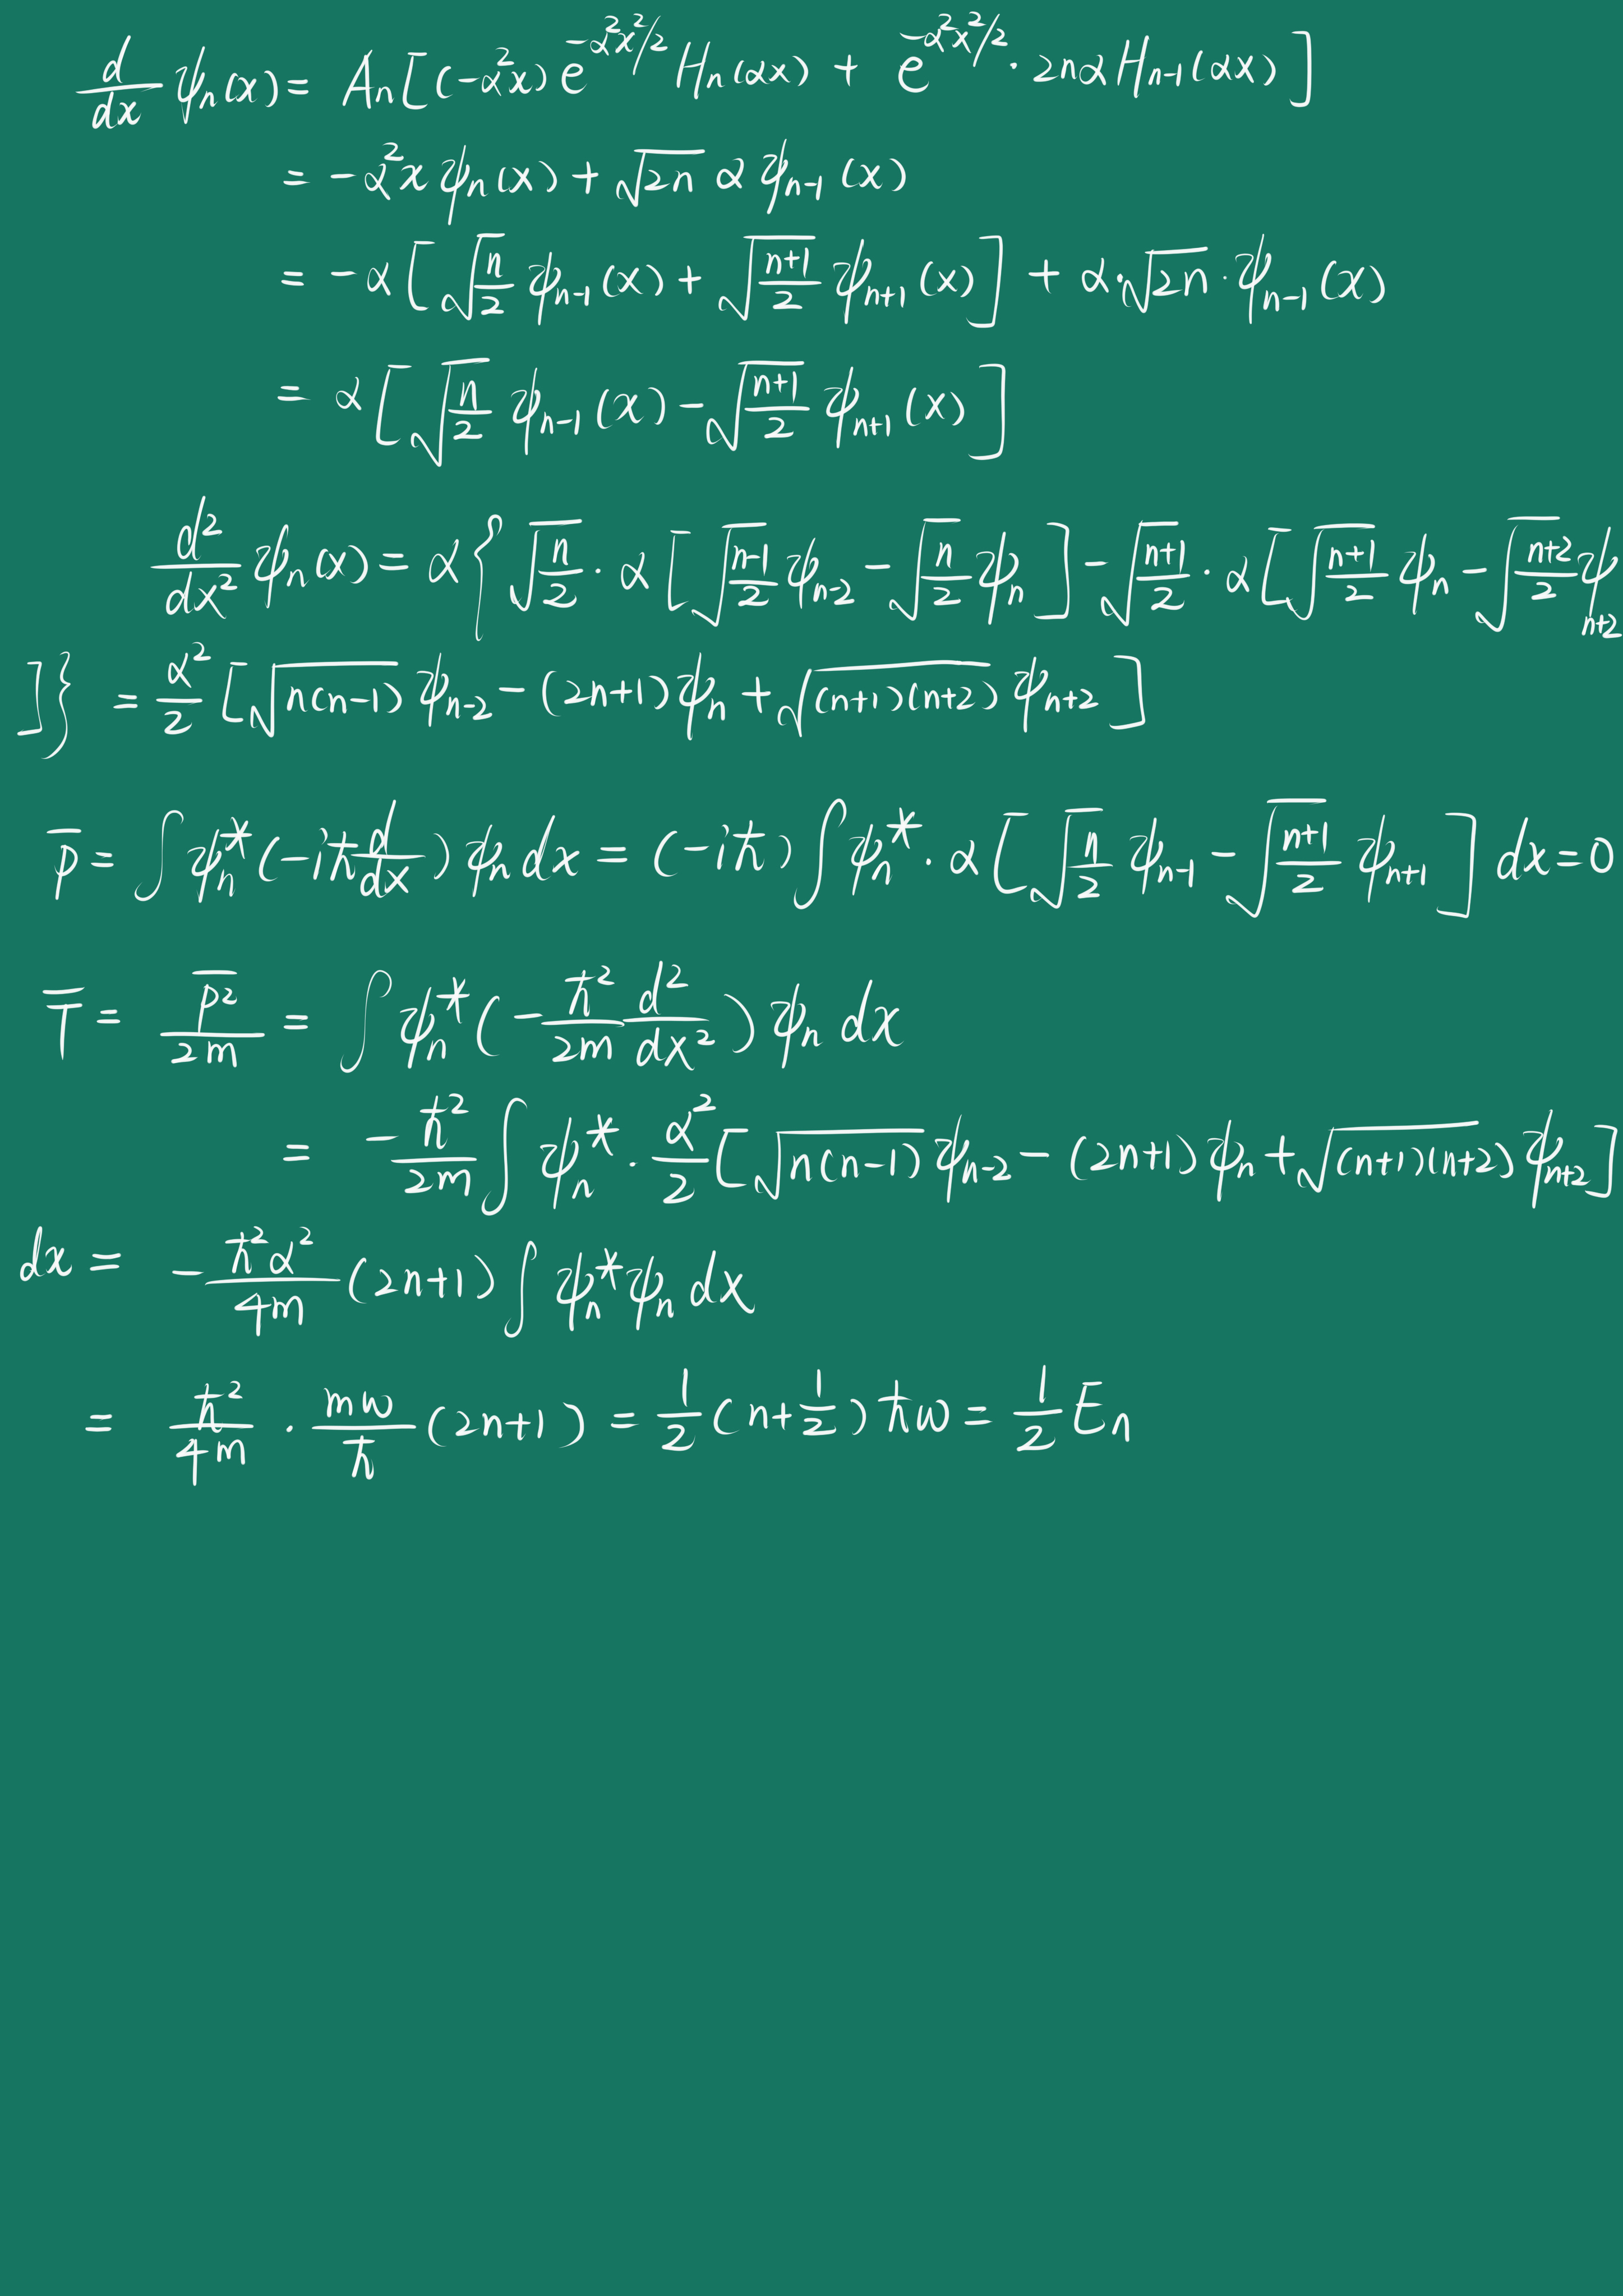 d/dx ψₙ(x) = Aₙ[(-α²x) e^(-α²x²/2) Hₙ(αx) + e^(-α²x²/2) · 2nα Hₙ₋₁(αx)]
= -α²x ψₙ(x) + √(2n) α ψₙ₋₁(x)
= -α[√(n/2) ψₙ₋₁(x) + √((n+1)/2) ψₙ₊₁(x)] + α·√(2n) · ψₙ₋₁(x)
= α[√(n/2) ψₙ₋₁(x) - √((n+1)/2) ψₙ₊₁(x)]
d²/dx² ψₙ(x) = α{√(n/2) · α[√((n-1)/2) ψₙ₋₂ - √(n/2) ψₙ] - √((n+1)/2) · α[√((n+1)/2) ψₙ - √((n+2)/2) ψₙ₊₂
]} = α²/2 [√(n(n-1)) ψₙ₋₂ - (2n+1)ψₙ + √((n+1)(n+2)) ψₙ₊₂]
p̅ = ∫ψₙ*(-iħ d/dx) ψₙ dx = (-iħ)∫ψₙ* · α[√(n/2) ψₙ₋₁ - √((n+1)/2) ψₙ₊₁] dx = 0
T̅ = p̅²/2m = ∫ψₙ*(-ħ²/2m d²/dx²) ψₙ dx
= -ħ²/2m ∫ψₙ* · α²/2 [√(n(n-1)) ψₙ₋₂ - (2n+1)ψₙ + √((n+1)(n+2)) ψₙ₊₂]
dx = -ħ²α²/4m (2n+1) ∫ψₙ*ψₙ dx
= ħ²/4m · mω/ħ (2n+1) = 1/2 (n+1/2) ħω = 1/2 Eₙ